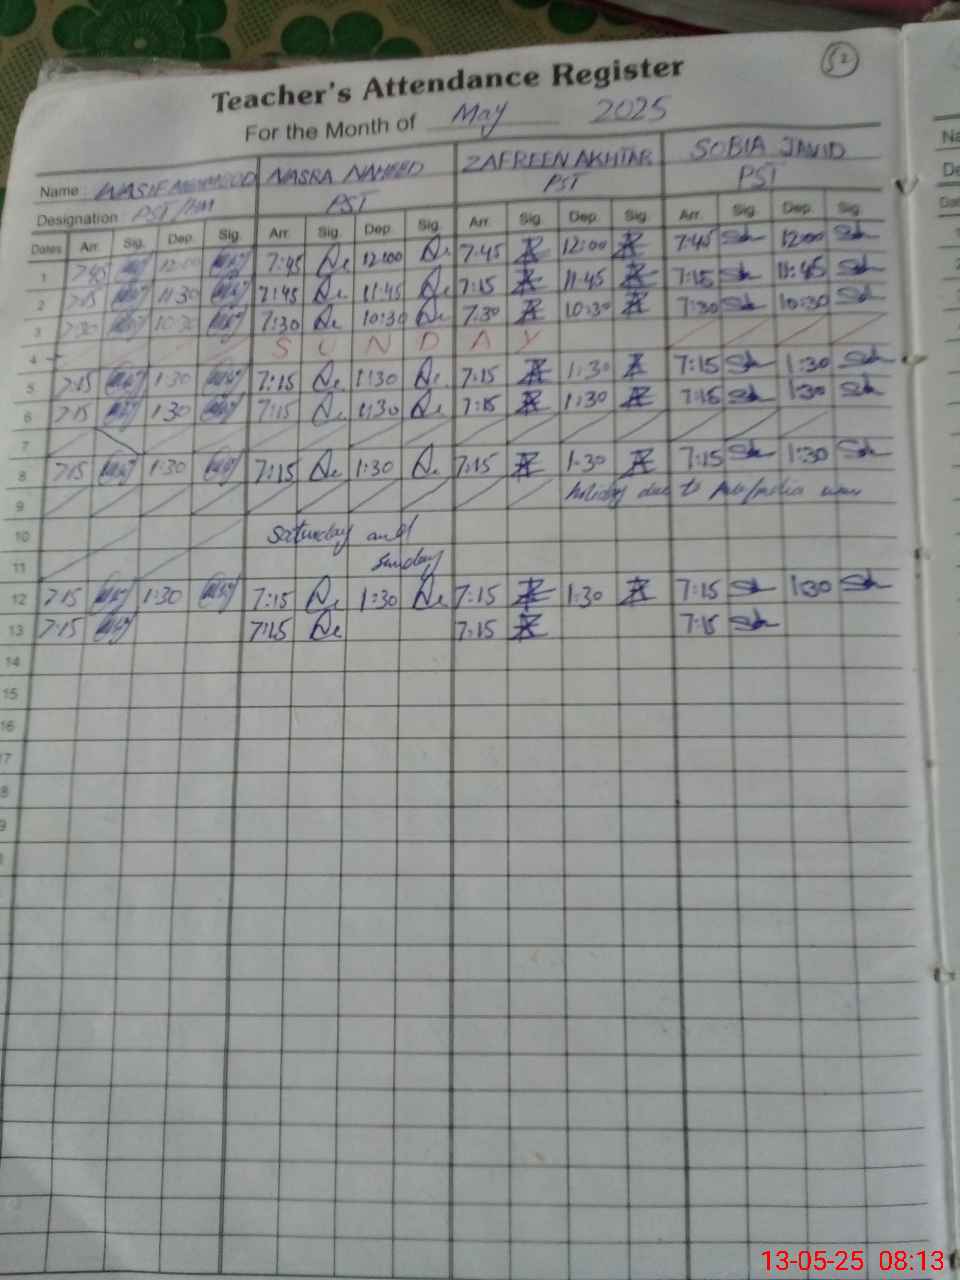 52
Teacher's Attendance Register
For the Month of May 2025
Name : WASIF MEHMOOD NASRA NAHEED ZAFREEN AKHTAR SOBIA JAVID
Designation PST/HM PST PST PST
Dates Arr. Sig. Dep. Sig. Arr. Sig. Dep. Sig. Arr. Sig. Dep. Sig. Arr. Sig. Dep. Sig.
1 7:45 12:00 7:45 12:00 7:45 12:00 7:45 12:00
2 7:15 11:30 7:45 11:45 7:15 11:45 7:15 11:45
3 7:30 10:30 7:30 10:30 7:30 10:30 7:30 10:30
4 SUNDAY
5 7:15 1:30 7:15 1:30 7:15 1:30 7:15 1:30
6 7:15 1:30 7:15 1:30 7:15 1:30 7:15 1:30
7
8 7:15 1:30 7:15 1:30 7:15 1:30 7:15 1:30
9 holiday due to war
10 Saturday and
11 Sunday
12 7:15 1:30 7:15 1:30 7:15 1:30 7:15 1:30
13 7:15 7:15 7:15 7:15
14
15
16
17
8
9
13-05-25 08:13